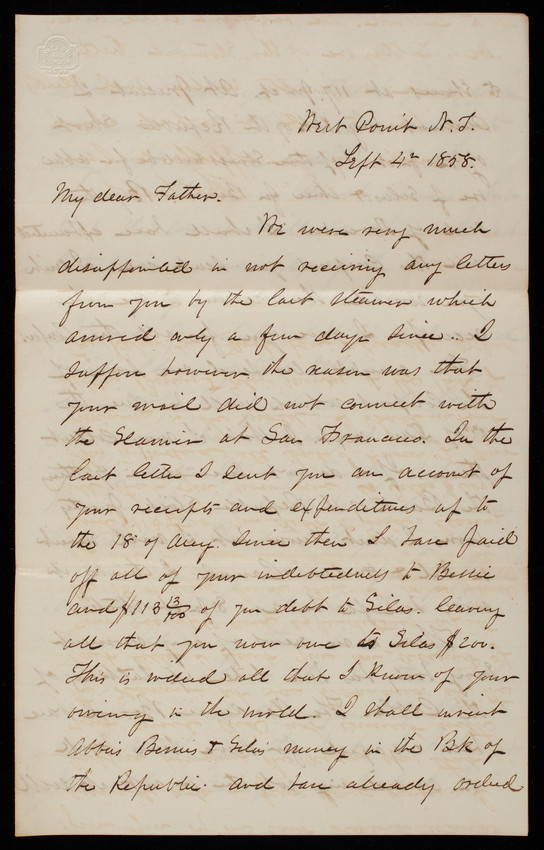 West Point N.Y.
Sept 4th 1858.
My dear Father.
We were very much
disappointed in not receiving any letters
from you by the last steamer which
arrived only a few days since. I
suppose however the reason was that
your mail did not connect with
the Steamer at San Francisco. In the
last letter I sent you an account of
your receipts and expenditures up to
the 18 of Aug. Since then I have paid
off all of your indebtedness to Bessie
and $113 13/100 of you debt to Silas. leaving
all that you now owe to Silas $200.
This is indeed all that I know of your
owing in the world. I shall invest
Abbies Bessies & Silas money in the Bk of
the Republic. and have already ordered